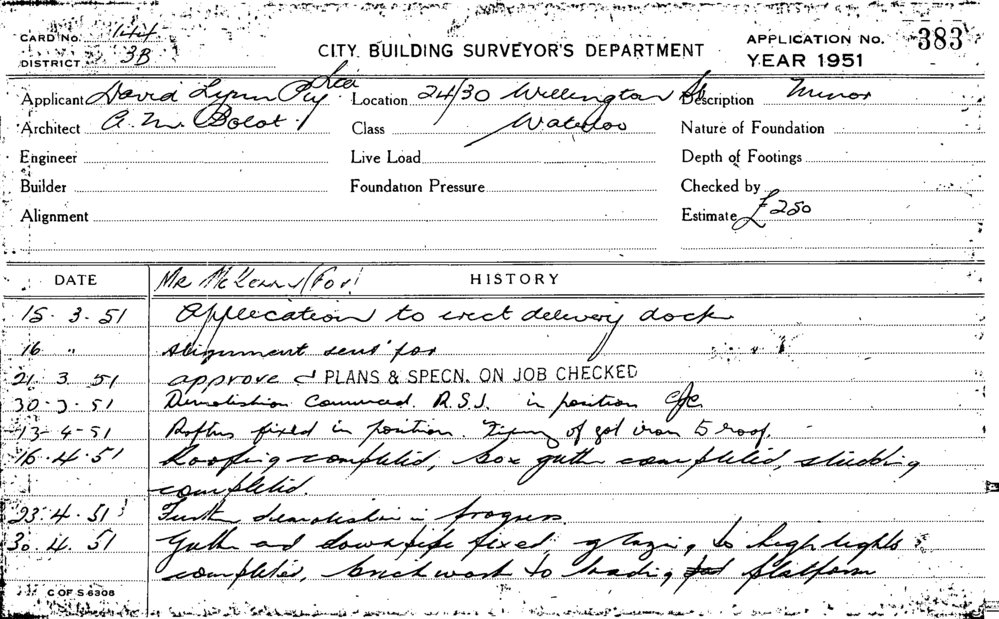 CARD No. 144
DISTRICT 3B
CITY BUILDING SURVEYOR'S DEPARTMENT
APPLICATION No. 383
YEAR 1951
Applicant David Lynn Pty Ltd Location 24/30 Wellington St Description Minor
Architect A. M. Bolot Class Waterloo Nature of Foundation
Engineer Live Load Depth of Footings
Builder Foundation Pressure Checked by
Alignment Estimate £250
DATE Mr (For) HISTORY
15.3.51 Application to erect delivery dock
16 " Alignment sent for
21.3.51 approved PLANS & SPECN. ON JOB CHECKED
30.3.51 Demolition Commenced. R.S.J. in position
13-4-51 Rafters fixed in position. of gal iron to roof.
16.4.51 Roofing completed, box gutter completed, studding
completed.
23.4.51 Further demolition in progress.
30.4.51 Gutter and downpipe fixed, glazing to high lights
completed, brickwork to loading platform
C OF S 6308